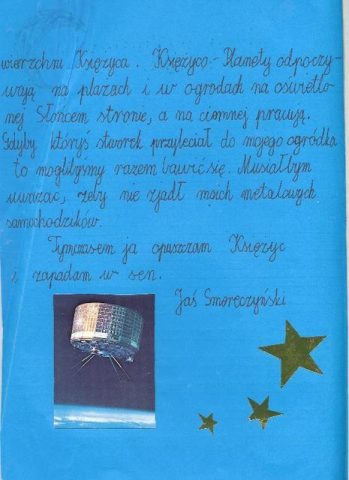 wierzchni Księżyca. Księżyco-Planety odpoczy-
wają na plażach i w ogrodach na oświetlo-
nej Słońcem stronie, a na ciemnej pracują.
Gdyby któryś stworek przyleciał do mojego ogródka
to moglibyśmy razem bawić się. Musiałbym
uważać, żeby nie zjadł moich metalowych
samochodzików.
Tymczasem ja opuszczam Księżyc
i zapadam w sen.
Jaś Smoręczyński